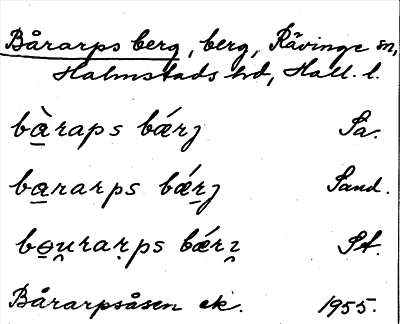 Bårarps berg, berg, Rävinge sn,
Halmstads hd, Hall. l.
bàraps bǽrȷ Sa.
bararps bǽrȷ Sand.
rarps bǽr St.
Bårarpsåsen ek. 1955.